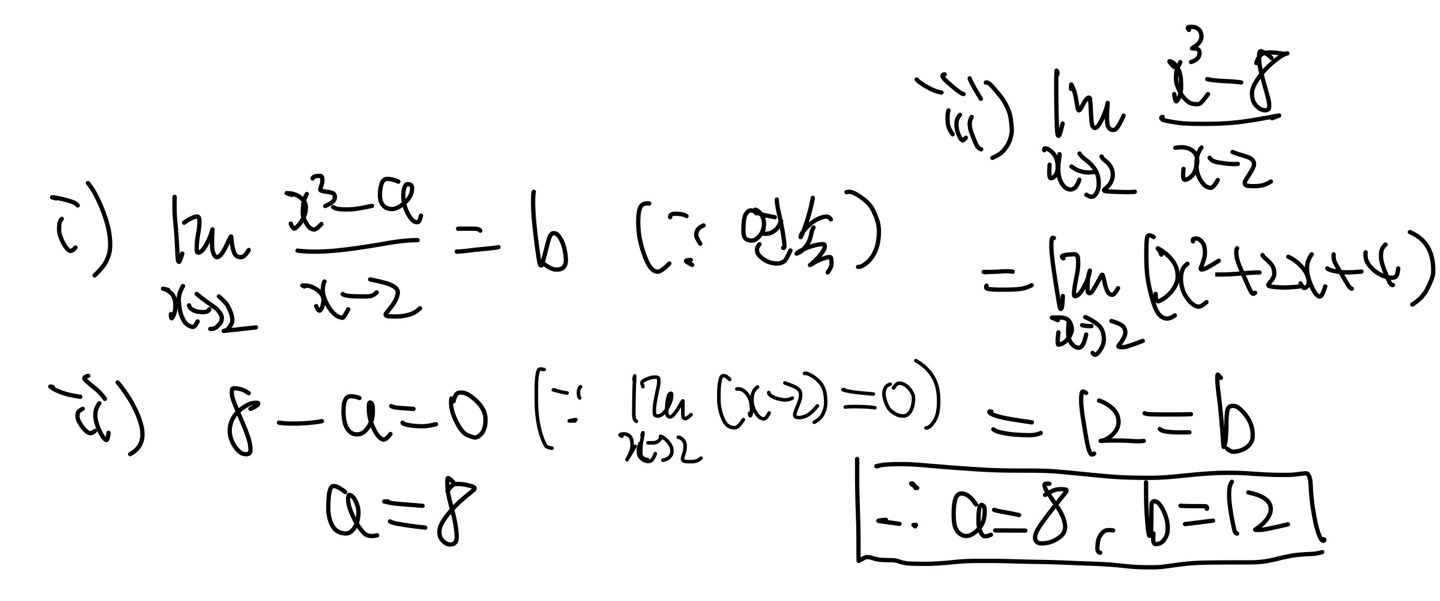 i) lim x→2 (x³-a)/(x-2) = b (∵ 연속)
ii) 8-a=0 (∵ lim x→2 (x-2)=0)
a=8
iii) lim x→2 (x³-8)/(x-2)
= lim x→2 (x²+2x+4)
= 12 = b
∴ a=8, b=12